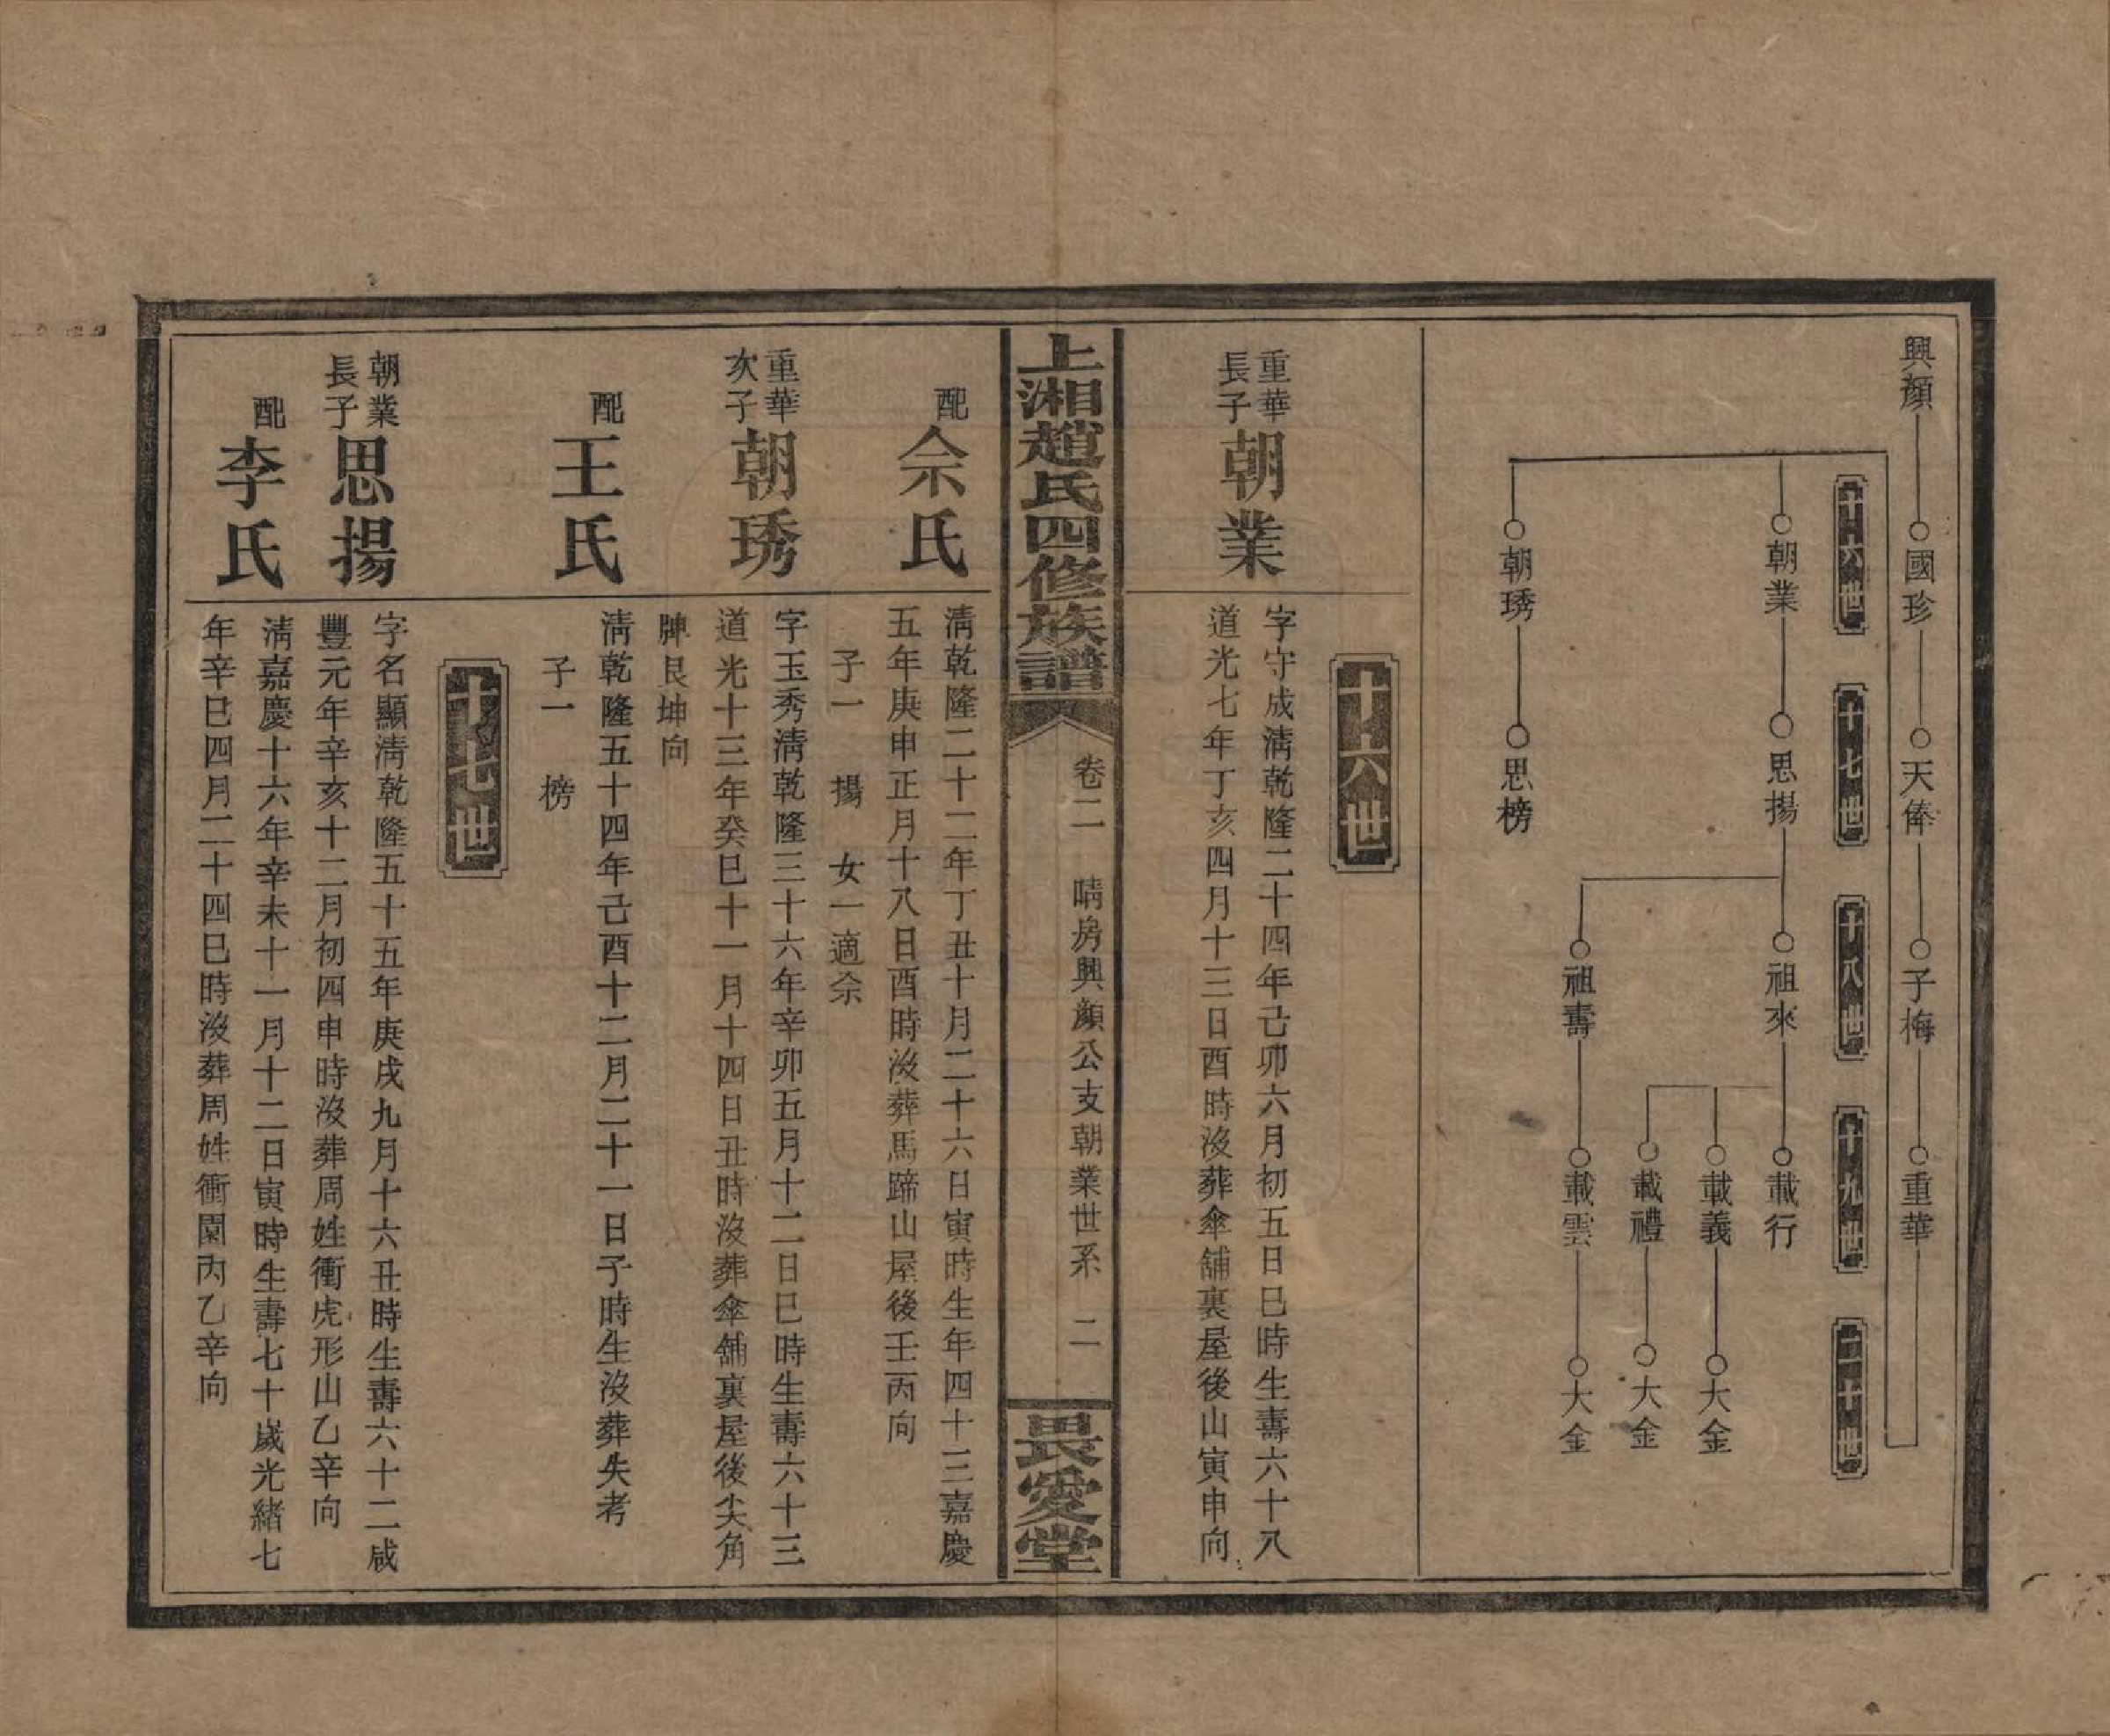 興顏 國珍 天俸 子梅 重華
十六世 十七世 十八世 十九世 二十世
朝業 思揚 祖來 載行
載義 大金
載禮 大金
祖壽 載雲 大金
朝琇 思榜
十六世
重華長子 朝業
字守成淸乾隆二十四年己卯六月初五日巳時生壽六十八
道光七年丁亥四月十三日酉時沒葬傘舖裏屋後山寅申向
上湘趙氏四修族譜 卷二 晴房興顏公支朝業世系 二 畏愛堂
配 佘氏
淸乾隆二十二年丁丑十月二十六日寅時生年四十三嘉慶
五年庚申正月十八日酉時沒葬馬蹄山屋後壬丙向
子一 揚 女一適佘
重華次子 朝琇
字玉秀淸乾隆三十六年辛卯五月十二日巳時生壽六十三
道光十三年癸巳十一月十四日丑時沒葬傘舖裏屋後尖角
牌艮坤向
配 王氏
淸乾隆五十四年己酉十二月二十一日子時生沒葬失考
子一 榜
十七世
朝業長子 思揚
字名顯淸乾隆五十五年庚戌九月十六丑時生壽六十二咸
豐元年辛亥十二月初四申時沒葬周姓衝虎形山乙辛向
配 李氏
淸嘉慶十六年辛未十一月十二日寅時生壽七十歲光緒七
年辛巳四月二十四巳時沒葬周姓衝園內乙辛向